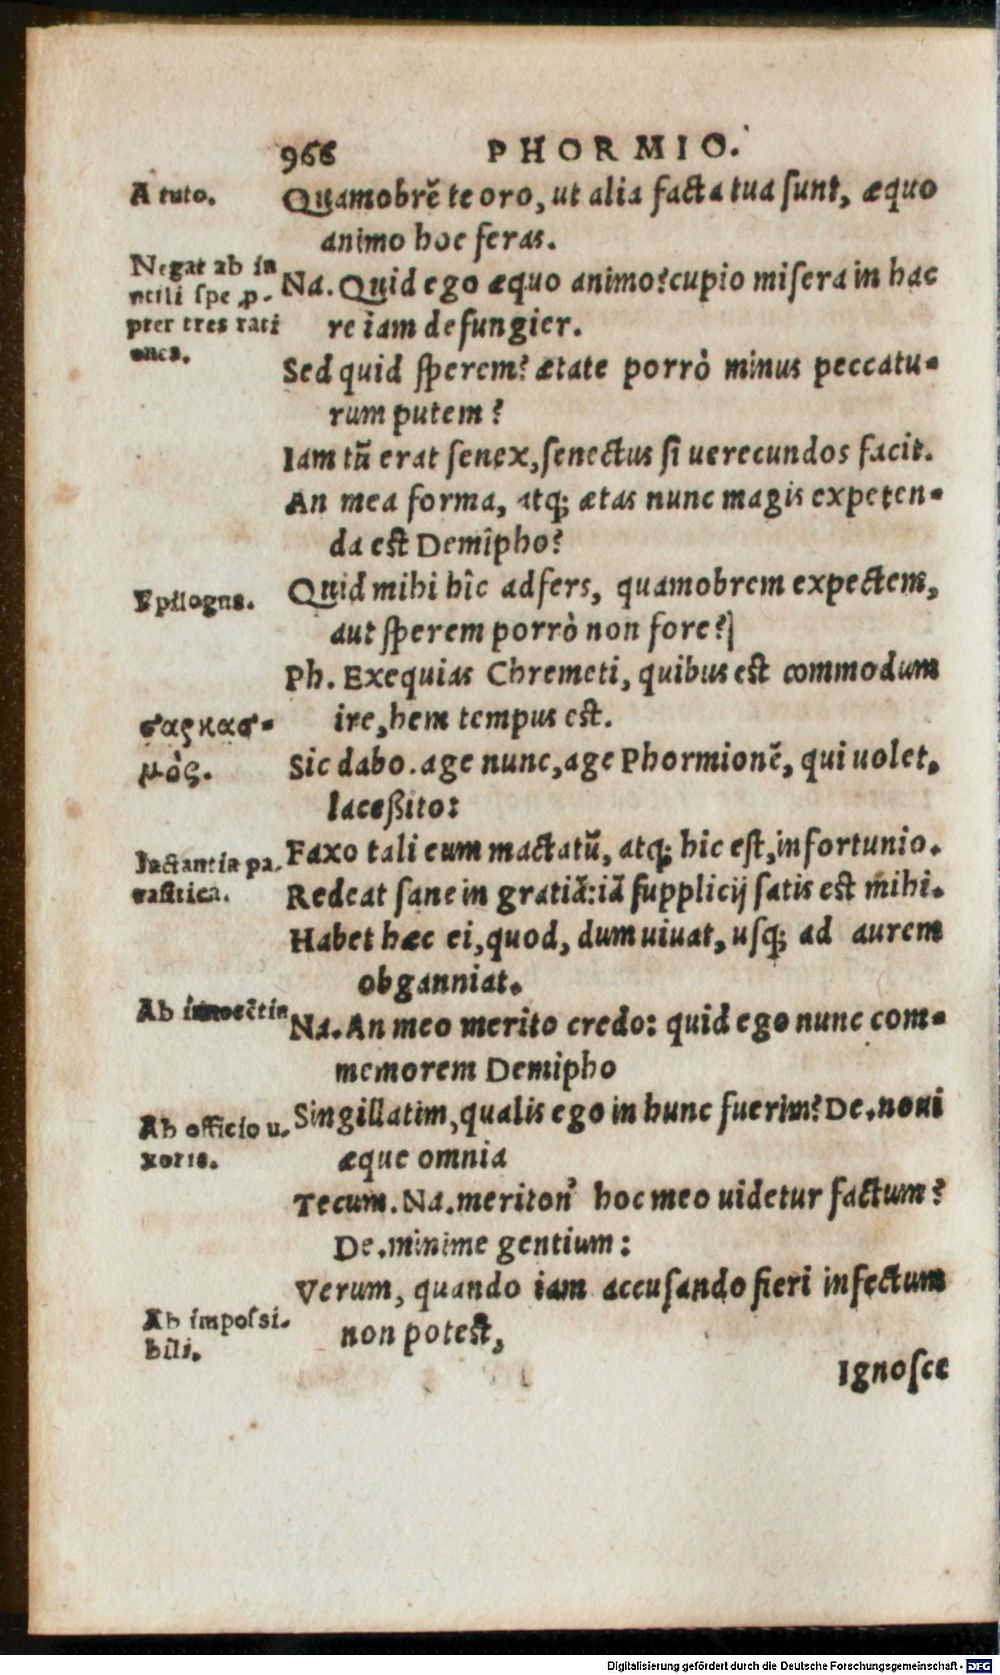 966 PHORMIO.
A tuto.
Quamobrē te oro, ut alia facta tua sunt, æquo
animo hoc feras.
Negat ab in
utili spe ꝓ-
pter tres rati
ones.
Na. Quid ego æquo animo? cupio misera in hac
re iam defungier.
Sed quid sperem? ætate porrò minus peccatu-
rum putem?
Iam tū erat senex, senectus si uerecundos facit.
An mea forma, atq; ætas nunc magis expeten-
da est Demipho?
Epilogus.
Quid mihi hîc adfers, quamobrem expectem,
aut sperem porrò non fore?]
Ph. Exequias Chremeti, quibus est commodum
ire, hem tempus est.
σαρκασ-
μὸς.
Sic dabo. age nunc, age Phormionē, qui uolet,
lacessito:
Iactantia pa-
rasitica.
Faxo tali eum mactatū, atq; hic est, infortunio.
Redeat sane in gratiā: iā supplicij satis est mihi.
Habet hæc ei, quod, dum uiuat, usq; ad aurem
obganniat.
Ab innocētia
Na. An meo merito credo: quid ego nunc com-
memorem Demipho
Ab officio u-
xoris.
Singillatim, qualis ego in hunc fuerim? De. noui
æque omnia
Tecum. Na. meriton' hoc meo uidetur factum?
De. minime gentium:
Verum, quando iam accusando fieri infectum
non potest,
Ab impossi-
bili.
Ignosce
Digitalisierung gefördert durch die Deutsche Forschungsgemeinschaft - DFG